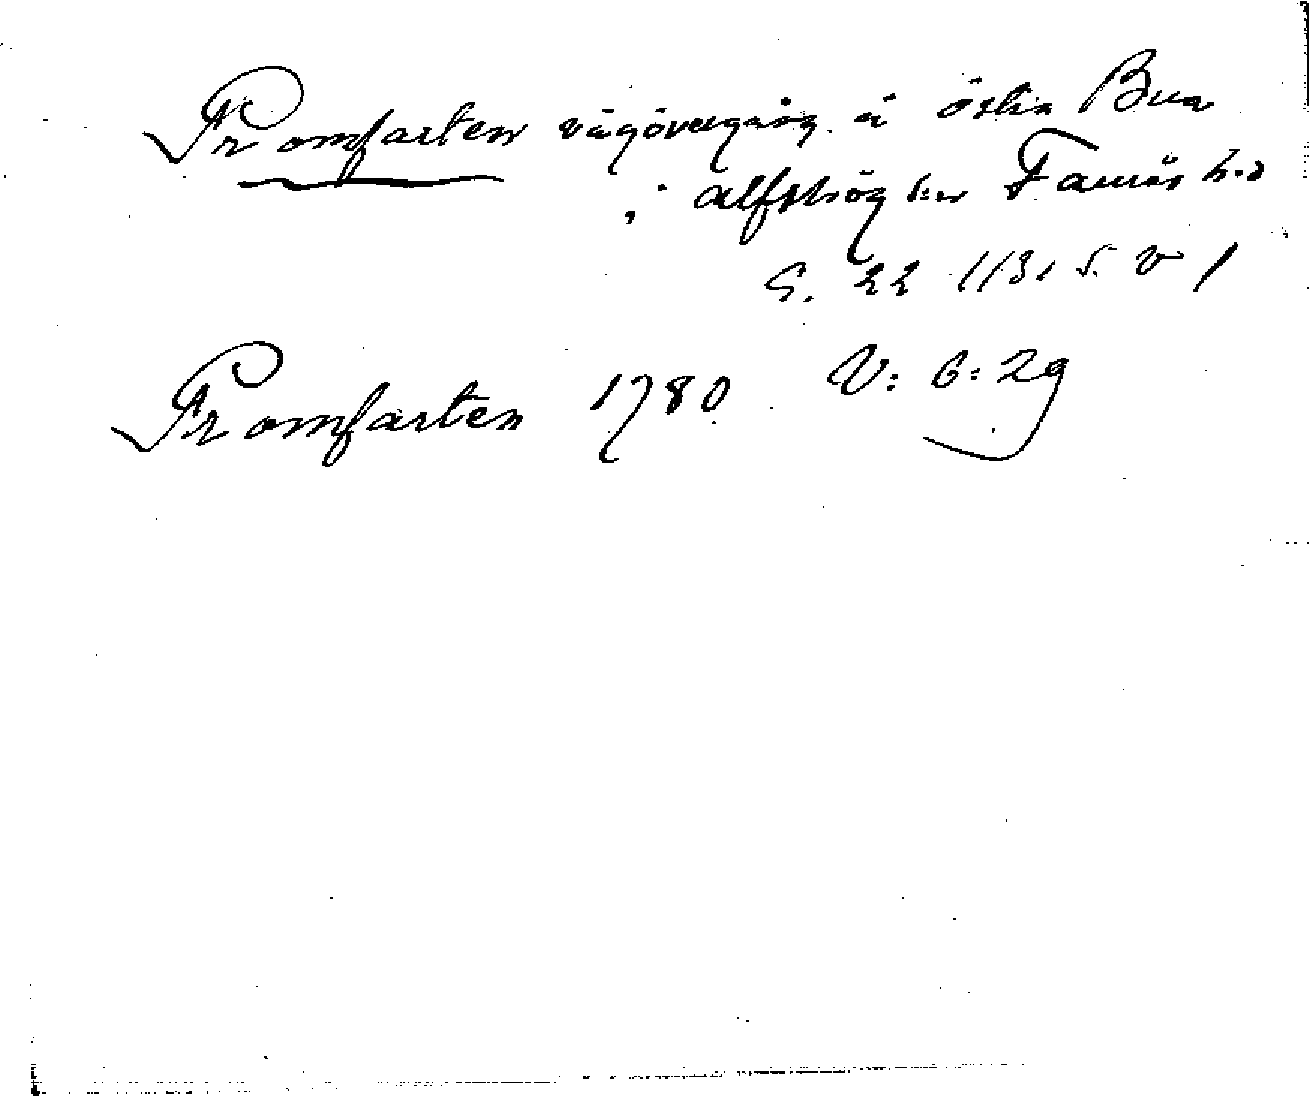 Fromfarten vägövergång å östra Bua
i Alfshög sn Faurås h.d
G. 22 113, S. V 1
Fromfarten 1780 V: 6: 29